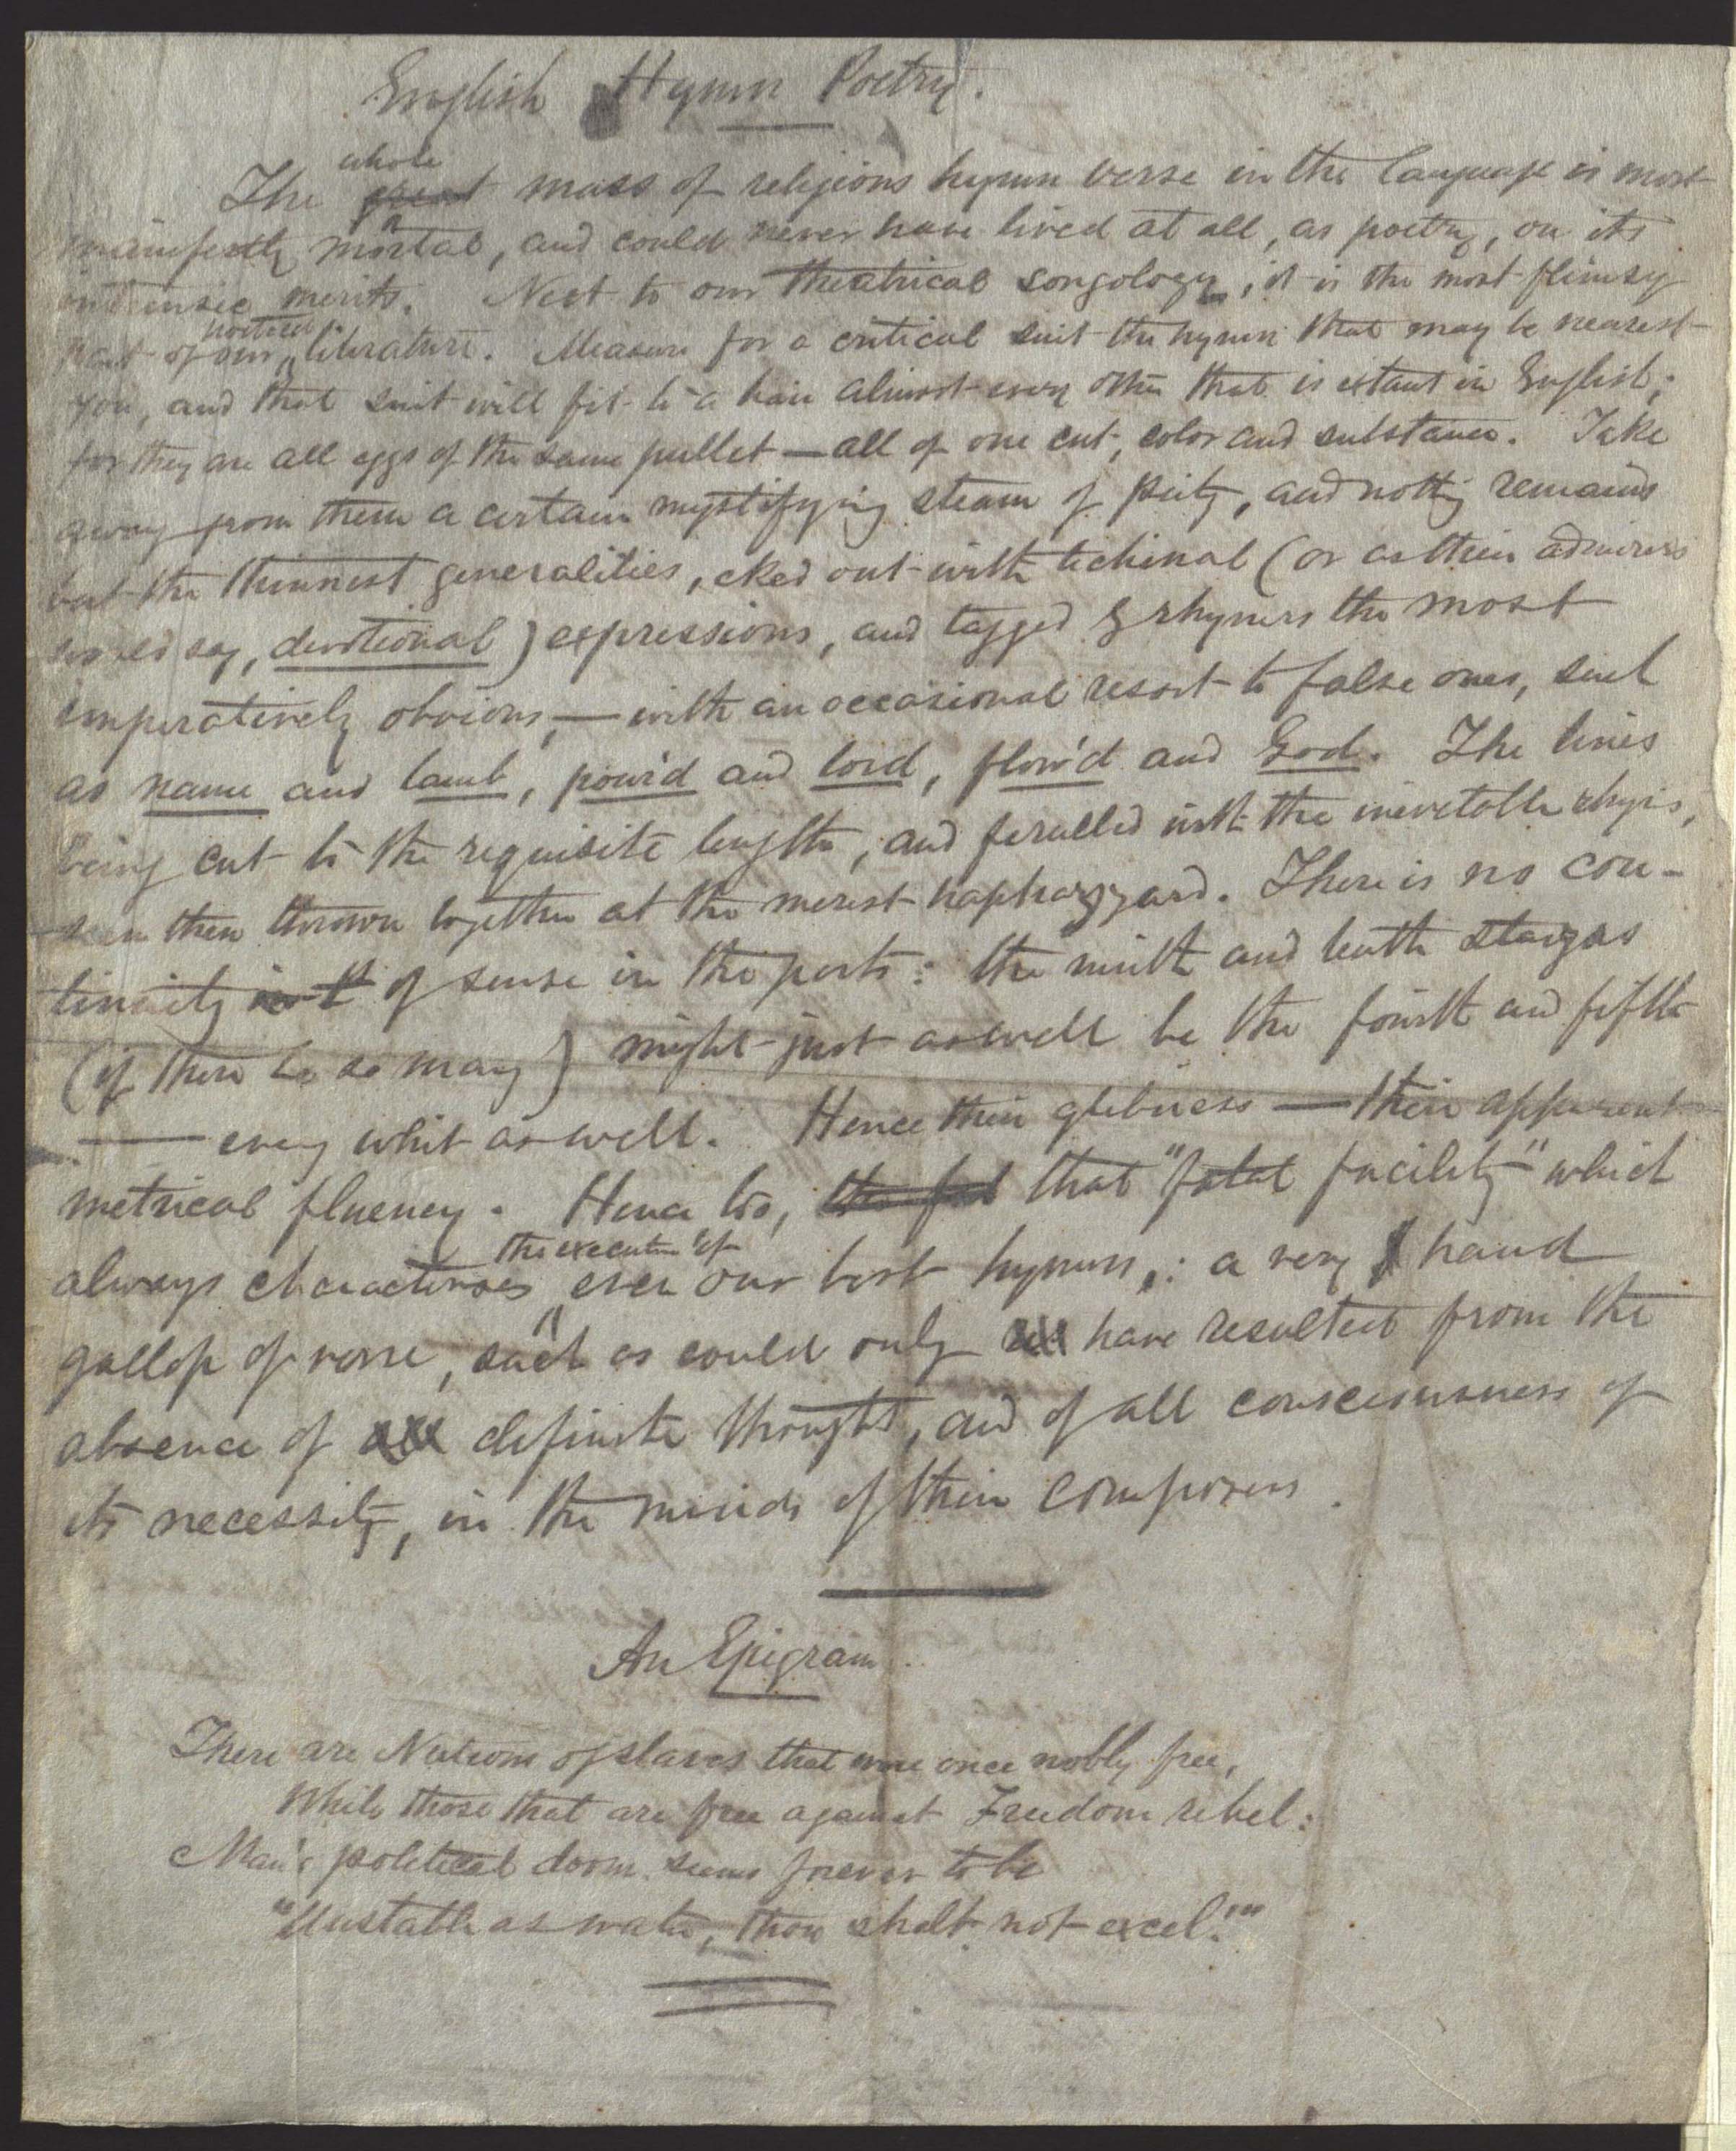 English Hymn Poetry.
whole
The great mass of religious hymn verse in the language is most
manifestly mortal, and could never have lived at all, as poetry, on its
intrinsic merits. Next to our theatrical songology, it is the most flimsy
poetical
part of our literature. Measure for a critical suit the hymn that may be nearest
you, and that suit will fit to a hair almost every other that is extant in English;
for they are all eggs of the same pullet — all of one cut, color and substance. Take
away from them a certain mystifying steam of piety, and nothing remains
but the thinnest generalities, eked out with techinal (or as their admirers
would say, devotional) expressions, and tagged & rhymers the most
imperatively obvious, — with an occasional resort to false ones, such
as name and lamb, pour'd and lord, flow'd and God. The lines
being cut to the requisite length, and ferulled with the inevitable
then thrown together at the merest haphazzard. There is no con-
tinuity of sense in the parts: the ninth and tenth stanzas
(if there be so many) might just as well be the fourth and fifth
— every whit as well. Hence their glibness — their apparent
metrical fluency. Hence, too, the fat that "fatal facility" which
the execution of
always characterises even our best hymns,: a very hand
gallop of verse, such as could only have resulted from the
absence of all definite thought, and of all consciousness of
its necessity, in the minds of their composers.
An Epigram.
There are Nations of slaves that were once nobly free,
While those that are free against Freedom rebel:
Man's political doom seems forever to be
"Unstable as water, thou shalt not excel!"